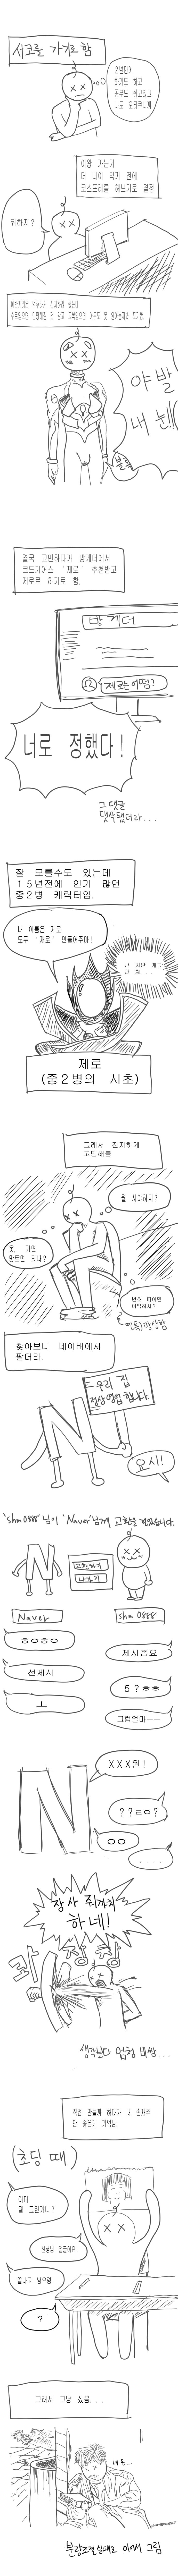 서코를 가기로 함
2년만에
하기도 하고
공부도 쉬고있고
나도 오타쿠니까
이왕 가는거
더 나이 먹기 전에
코스프레를 해보기로 결정
뭐하지?
야발
내 눈!!
결국 고민하다가 방게더에서
코드기어스 '제로' 추천받고
제로로 하기로 함.
방게더
제로는 어떰?
너로 정했다!
그 댓글
댓삭됐더라...
잘 모를수도 있는데
15년전에 인기 많던
중2병 캐릭터임.
내 이름은 제로
모두 '제로' 만들어주마!
제로
(중2병의 시초)
그래서 진지하게
고민해봄
뭘 사야하지?
옷, 가면,
망토면 되나?
번호 따이면
어떡하지?
찾아보니 네이버에서
팔더라.
우리 집
정상영업합니다.
요시!
'shm0888'님이 'Naver'님께 교환을 걸었습니다.
교환하기
나누기
Naver
shm0888
ㅎㅇㅎㅇ
제시좀요
선제시
5?ㅎㅎ
ㅗ
그럼얼마--
XXX원!
??ㄹㅇ?
ㅇㅇ
....
장사 줫까치
하네!
와장창
생각보다 엄청 비쌈...
직접 만들까 하다가 내 손재주
안 좋은게 기억남.
(초딩 때)
어머
뭘 그린거니?
선생님 얼굴이요!
끝나고 남으렴.
?
그래서 그냥 샀음...
내 돈..